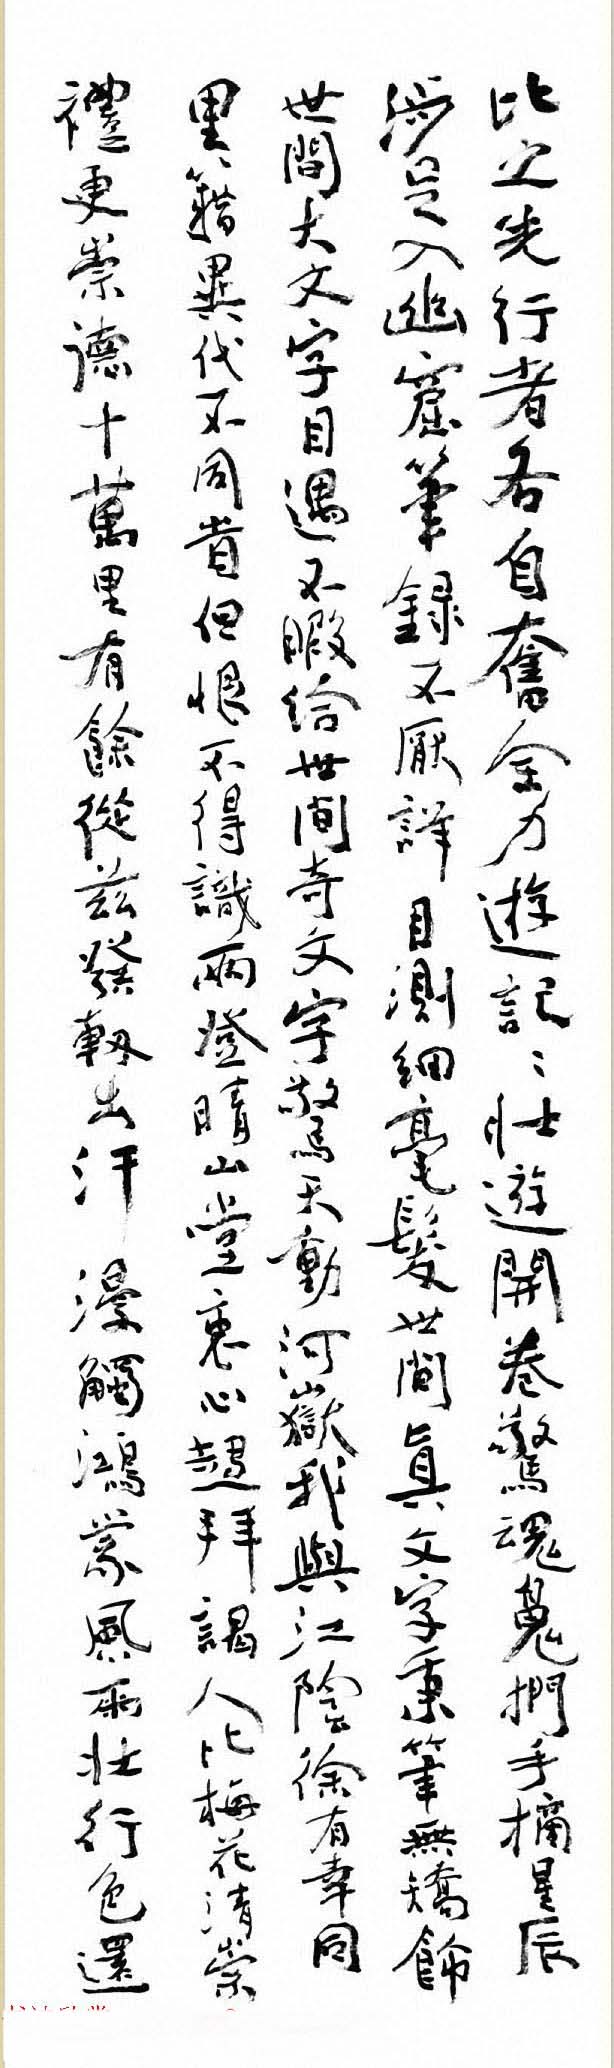 比之先行者各自奮全力遊記〻壯遊開卷驚魂魄捫手摘星辰
涉足入幽窟筆錄不厭詳目測細毫髮世間真文字秉筆無矯飾
世間大文字目遇不暇給世間奇文字驚天動河嶽我與江陰徐有幸同
里籍異代不同時但恨不得識兩登晴山堂衷心趨拜謁人比梅花清崇
禮更崇德十萬里有餘從茲發軔出汗漫觸鴻蒙風雨壯行色還